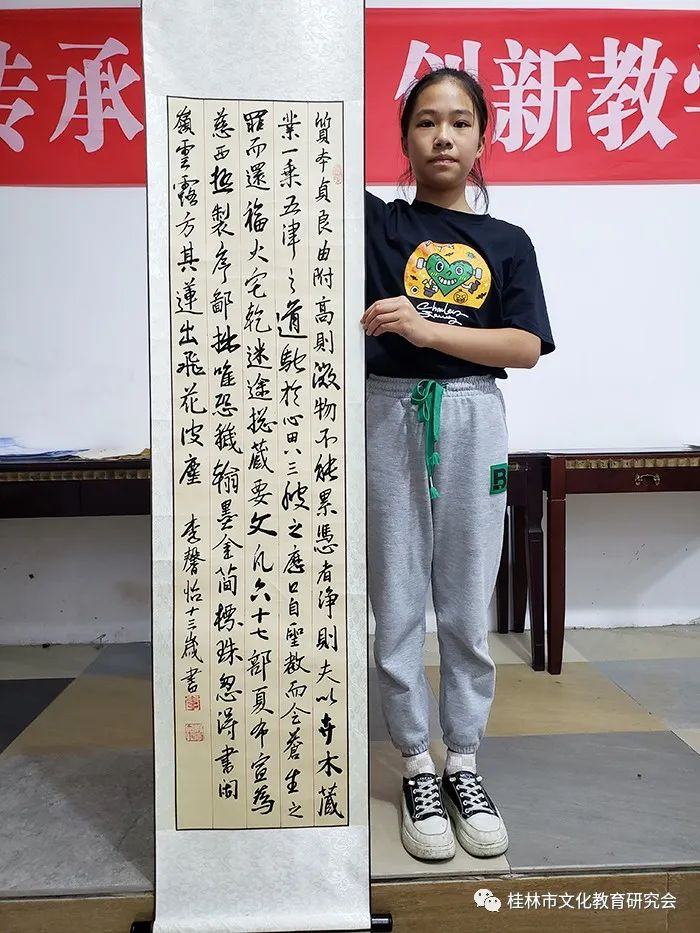 传承 创新教学
質本貞良由附高則微物不能累憑者淨則夫以卉木藏
業一乘五津之道馳於心田八三之應口自聖教而令蒼生之
罪而還福火宅乾迷途揔藏要文凡六十七部夏布宣為
慈西極製序鄙拙唯恐穢翰墨金簡標珠忽得書闻
嶺雲露方其蓮出飛花塵
李馨怡十三歲書
B
桂林市文化教育研究会